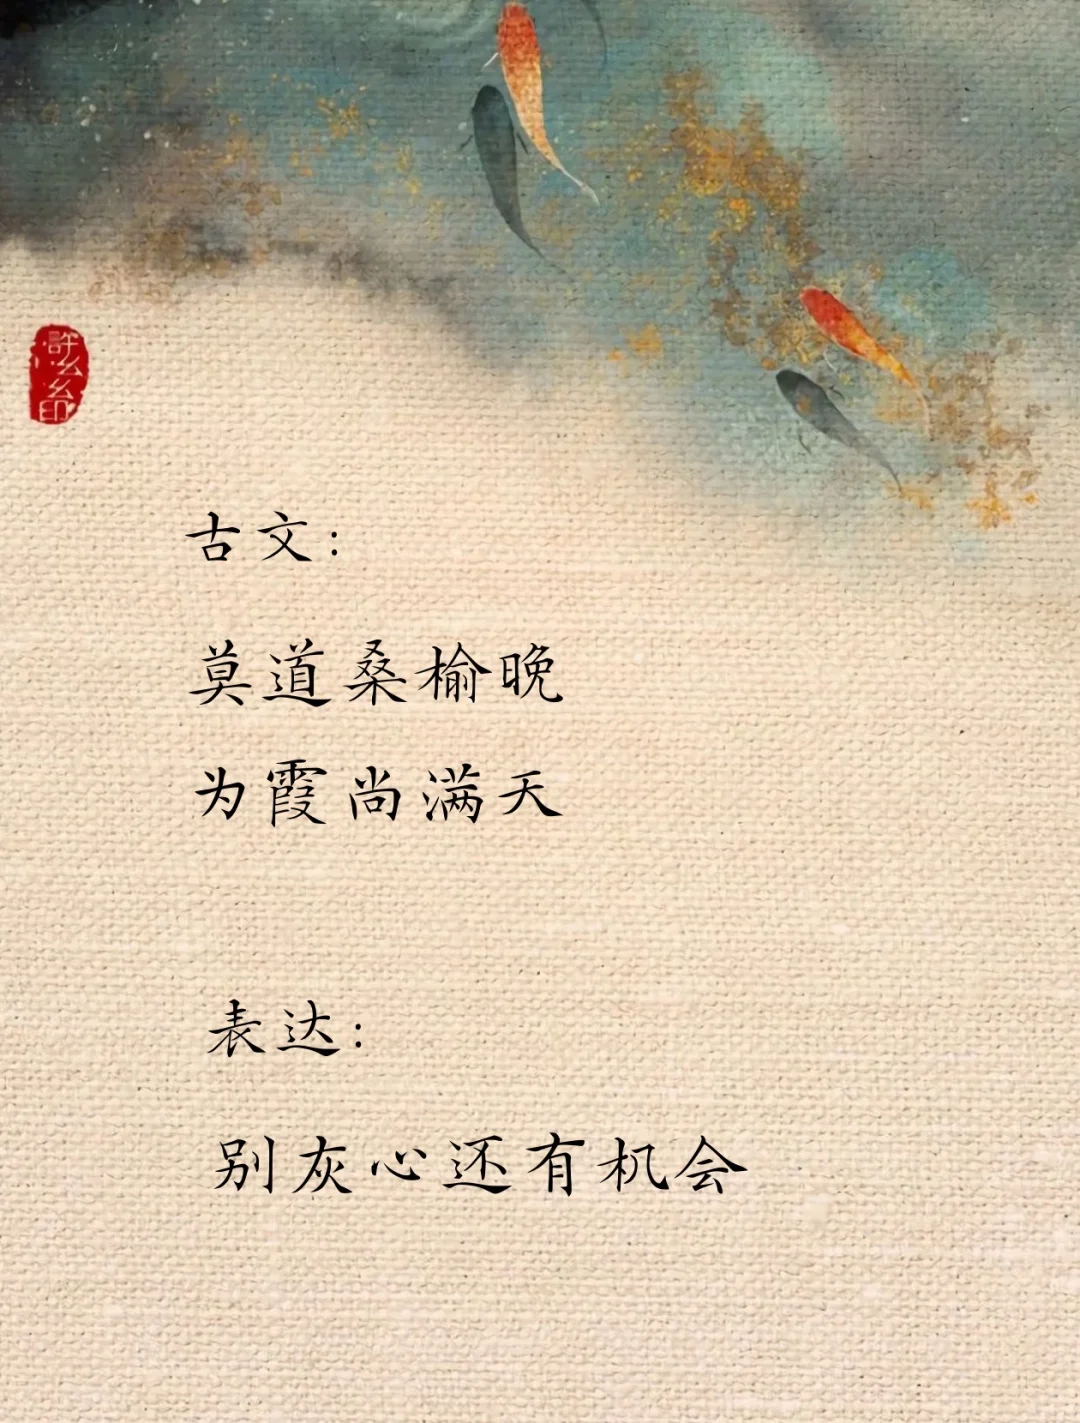 古文:
莫道桑榆晚
为霞尚满天
表达:
别灰心还有机会